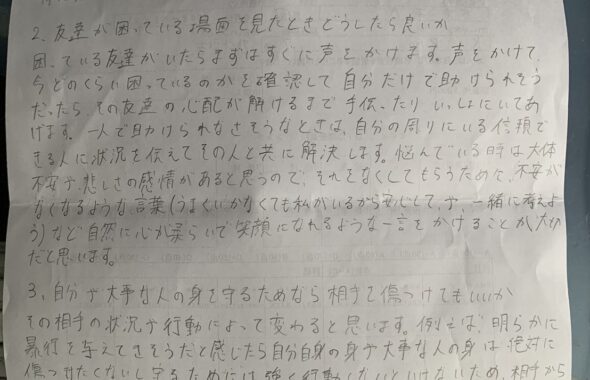 2. 友達が困っている場面を見たときどうしたら良いか
困っている友達がいたらまずはすぐに声をかけます。声をかけて
今どのくらい困っているのかを確認して自分だけで助けられそう
だったら、その友達の心配が解けるまで手伝ったりいっしょにいてあ
げます。一人で助けられなさそうなときは、自分の周りにいる信頼で
きる人に状況を伝えてその人と共に解決します。悩んでいる時は大体
不安や悲しさの感情があると思うので、それをなくしてもらうために、不安が
なくなるような言葉(うまくいかなくても私がいるから安心して、や、一緒に考えよ
う)など自然に心が柔らいで笑顔になれるような一言をかけることが大切
だと思います。
3、自分や大事な人の身を守るためなら相手を傷つけてもいいか
その相手の状況や行動によって変わると思います。例えば、明らかに
暴行を与えてきそうだと感じたら自分自身の身や大事な人の身は絶対に
傷つけたくないし守るためには強く行動しないといけないため、相手から